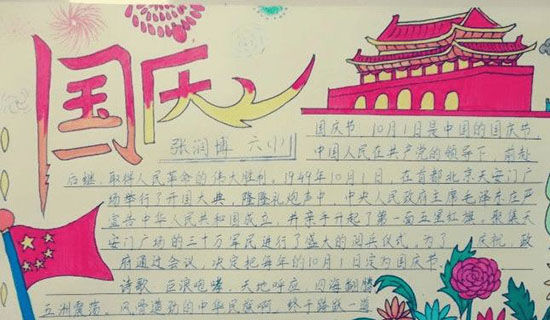 国庆
张润博 六(1)
国庆节。10月1日是中国的国庆节,
中国人民在共产党的领导下,前赴
后继,取得人民革命的伟大胜利。1949年10月1日,在首都北京天安门
广场举行了开国大典,隆隆礼炮声中,中央人民政府主席毛泽东庄严
宣告中华人民共和国成立,并亲手升起了第一面五星红旗。聚集天
安门广场的三十万军民进行了盛大的阅兵仪式,为了 庆祝,政
府通过会议,决定把每年的10月1日定为国庆节。
诗歌 巨浪咆哮,天地呼应 四海翻腾
五洲震荡 风云激动的中华民族啊 终于